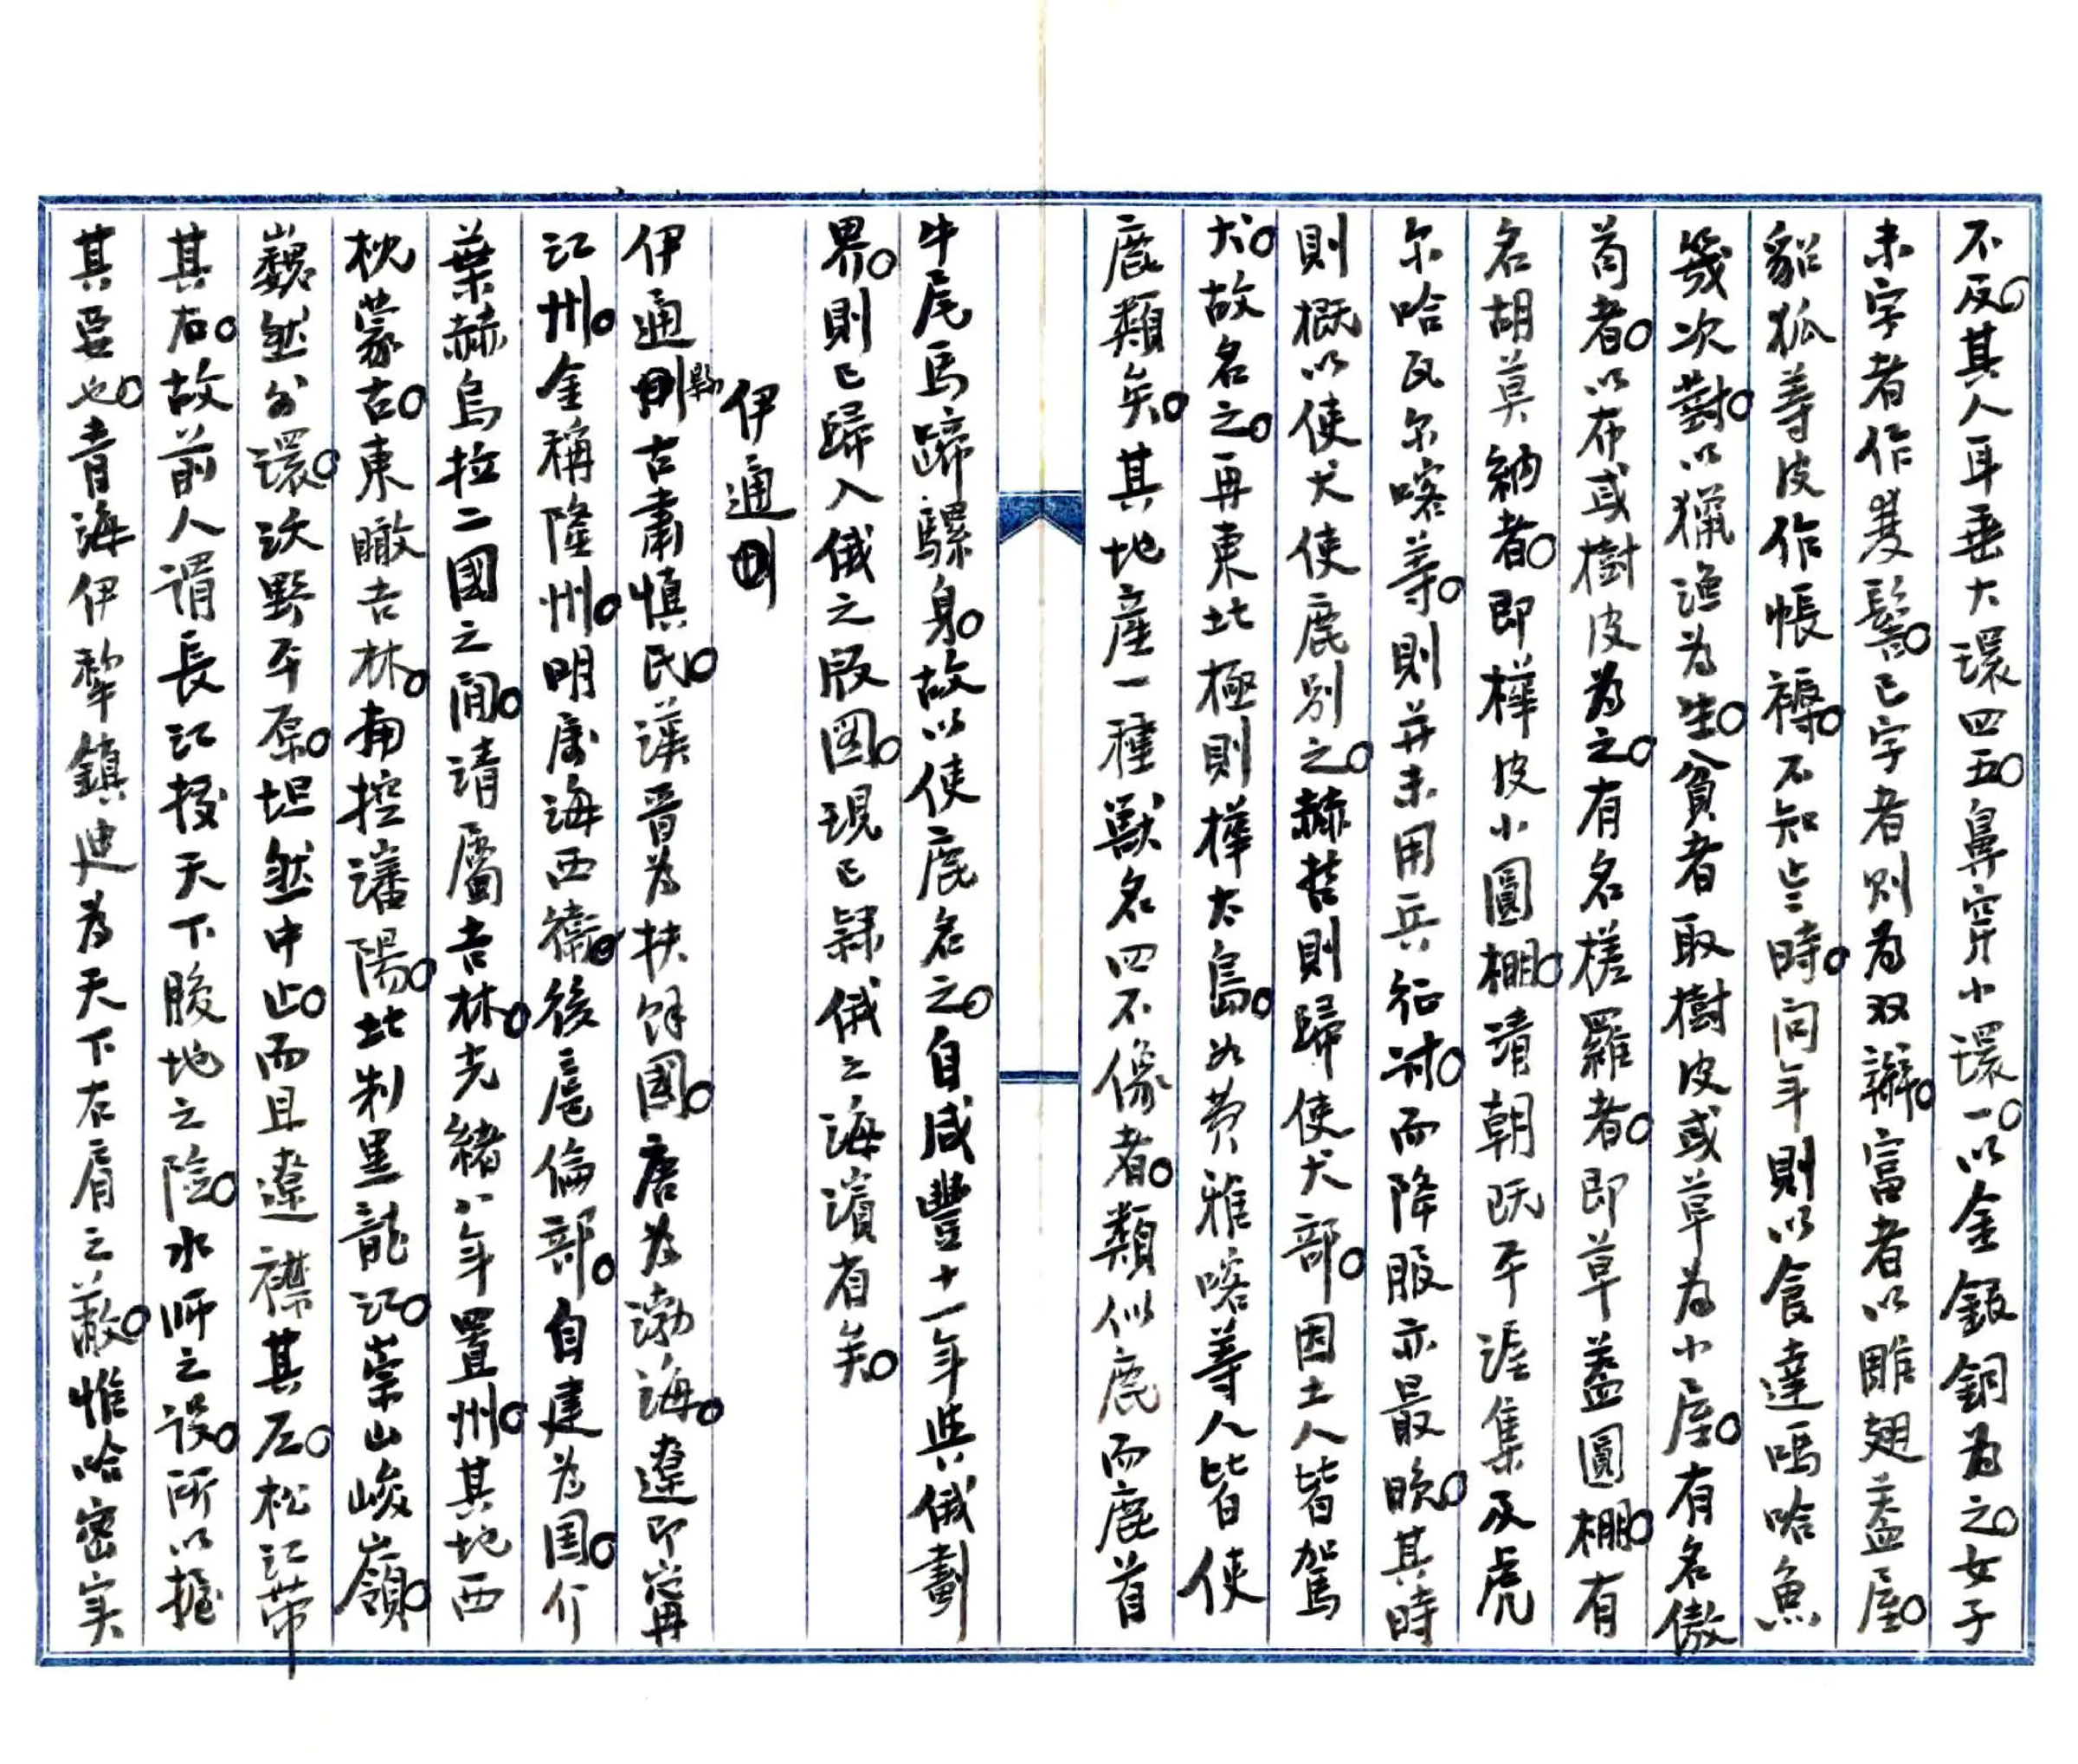 不反。其人耳垂大環四五。鼻穿小環一。以金銀銅為之。女子
未字者作雙鬟。已字者則為双辮。富者以雕翅蓋屋。
貂狐等皮作帳褥。不知歲時。問年則以食達嗎哈魚
幾次對。以獵漁為生。貧者取樹皮或草為小屋。有名傲
苟者。以布或樹皮為之。有名槎羅者。即草蓋圓棚。有
名胡莫納者。即樺皮小圓棚。清朝既平涯集及虎
尔哈瓦尔喀等。則并未用兵征討。而降服亦最晚。其時
則概以使犬使鹿別之。赫哲則歸使犬部。因土人皆駕
犬。故名之。再東北極則樺太島。如費雅喀等人皆使
鹿類矣。其地產一種獸名四不像者。類似鹿而鹿首
牛尾馬蹄騾身。故以使鹿名之。自咸豐十一年與俄劃
界。則已歸入俄之版圖。現已隸俄之海濱省矣。
伊通
伊通縣古肅慎民。漢晋為扶餘國。唐為渤海。遼即甯
江州。金稱隆州。明屬海西衛。後扈倫部。自建為国。介
葉赫烏拉二國之間。清屬吉林。光緒八年置州。其地西
枕蒙古。東瞰吉林。南控瀋陽。北制黑龍江。崇山峻嶺。
巍然分環。沃野平原。坦然中止。而且遼襟其左。松江帶
其右。故前人謂長江扼天下腹地之險。水師之設。所以握
其要也。青海伊犂鎮迪為天下右肩之蔽。惟哈密实